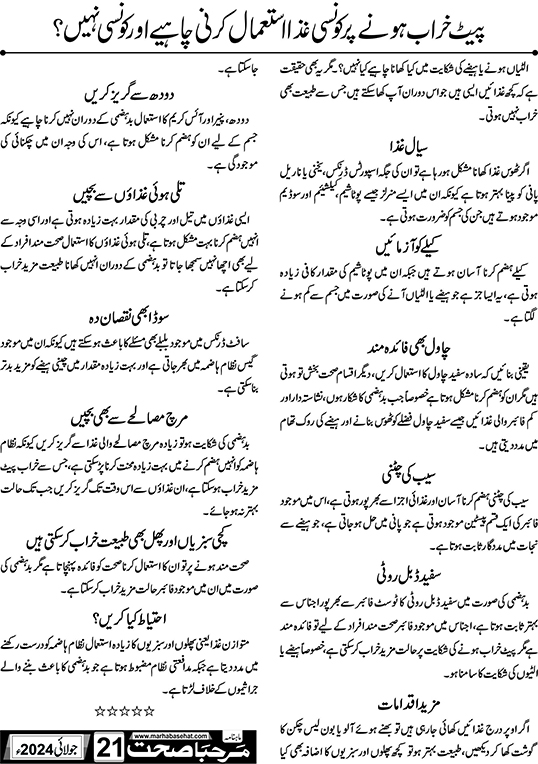 پیٹ خراب ہونے پر کونسی غذا استعمال کرنی چاہیے اور کونسی نہیں؟
الٹیاں ہونے یا ہیضے کی شکایت میں کیا کھانا چاہیے کیا نہیں؟۔ مگر یہ بھی حقیقت
ہے کہ کچھ غذائیں ایسی ہیں جو اس دوران آپ کھا سکتے ہیں جس سے طبیعت بھی
خراب نہیں ہوتی۔
سیال غذا
اگر ٹھوس غذا کھانا مشکل ہو رہا ہے تو ان کی جگہ اسپورٹس ڈرنکس، یخنی یا ناریل
پانی کو پینا بہتر ہوتا ہے کیونکہ ان میں ایسے منرلز جیسے پوٹاشیم، کیلشیئم اور سوڈیم
موجود ہوتے ہیں جن کی جسم کو ضرورت ہوتی ہے۔
کیلے کو آزمائیں
کیلے ہضم کرنا آسان ہوتے ہیں جبکہ ان میں پوٹاشیم کی مقدار کافی زیادہ
ہوتی ہے، یہ ایسا جز ہے جو ہیضے یا الٹیاں آنے کی صورت میں جسم سے کم ہونے
لگتا ہے۔
چاول بھی فائدہ مند
یقینی بنائیں کہ سادہ سفید چاول کا استعمال کریں، دیگر اقسام صحت بخش تو ہوتی
ہیں مگر ان کو ہضم کرنا مشکل ہوتا ہے خصوصاً جب بدہضمی کا شکار ہوں، نشاستہ دار اور
کم فائبر والی غذائیں جیسے سفید چاول فضلے کو ٹھوس بنانے اور ہیضے کی روک تھام
میں مدد دیتی ہیں۔
سیب کی چٹنی
سیب کی چٹنی ہضم کرنا آسان اور غذائی اجزا سے بھرپور ہوتی ہے، اس میں موجود
فائبر کی ایک قسم پیپٹین موجود ہوتی ہے جو پانی میں حل ہو جاتی ہے، جو ہیضے سے
نجات میں مددگار ثابت ہوتا ہے۔
سفید ڈبل روٹی
بدہضمی کی صورت میں سفید ڈبل روٹی کا ٹوسٹ فائبر سے بھرپور اجناس سے
بہتر ثابت ہوتا ہے، اجناس میں موجود فائبر صحت مند افراد کے لیے تو فائدہ مند
ہے مگر پیٹ خراب ہونے کی شکایت پر حالت مزید خراب کر سکتی ہے خصوصاً ہیضے یا
الٹیوں کی شکایت کا سامنا ہو۔
مزید اقدامات
اگر اوپر درج غذائیں کھائی جا رہی ہیں تو بھنے ہوئے آلو یا بون لیس چکن کا
گوشت کھا کر دیکھیں، طبیعت بہتر ہو تو کچھ پھلوں اور سبزیوں کا اضافہ بھی کیا
جا سکتا ہے۔
دودھ سے گریز کریں
دودھ، پنیر اور آئس کریم کا استعمال بدہضمی کے دوران نہیں کرنا چاہیے کیونکہ
جسم کے لیے ان کو ہضم کرنا مشکل ہوتا ہے، اس کی وجہ ان میں چکنائی کی
موجودگی ہے۔
تلی ہوئی غذاؤں سے بچیں
ایسی غذاؤں میں تیل اور چربی کی مقدار بہت زیادہ ہوتی ہے اور اسی وجہ سے
انہیں ہضم کرنا بہت مشکل ہوتا ہے، تلی ہوئی غذاؤں کا استعمال صحت مند افراد کے
لیے بھی اچھا نہیں سمجھا جاتا تو بدہضمی کے دوران انہیں کھانا طبیعت مزید خراب
کر سکتا ہے۔
سوڈا بھی نقصان دہ
سافٹ ڈرنکس میں موجود بلبلے بھی مسئلے کا باعث ہو سکتے ہیں کیونکہ ان میں موجود
گیس نظام ہاضمہ میں بھر جاتی ہے اور بہت زیادہ مقدار میں چینی ہیضے کو مزید بدتر
بنا سکتی ہے۔
مرچ مصالحے سے بھی بچیں
بدہضمی کی شکایت ہو تو زیادہ مرچ مصالحے والی غذا سے گریز کریں کیونکہ نظام
ہاضمہ کو انہیں ہضم کرنے میں بہت زیادہ محنت کرنا پڑ سکتی ہے، جس سے خراب پیٹ
مزید خراب ہو سکتا ہے، ان غذاؤں سے اس وقت تک گریز کریں جب تک حالت
بہتر نہ ہو جائے۔
کچی سبزیاں اور پھل بھی طبیعت خراب کر سکتی ہیں
صحت مند ہونے پر تو ان کا استعمال کرنا صحت کو فائدہ پہنچاتا ہے مگر بدہضمی کی
صورت میں ان میں موجود فائبر حالت مزید خراب کر سکتا ہے۔
احتیاط کیا کریں؟
متوازن غذا یعنی پھلوں اور سبزیوں کا زیادہ استعمال نظام ہاضمہ کو درست رکھنے
میں مدد دیتا ہے جبکہ مدافعتی نظام مضبوط ہوتا ہے جو بدہضمی کا باعث بننے والے
جراثیموں کے خلاف لڑتا ہے۔
☆☆☆☆☆
www.marhabasehat.com
ماہنامہ
مرحبا صحت
21
جولائی 2024ء